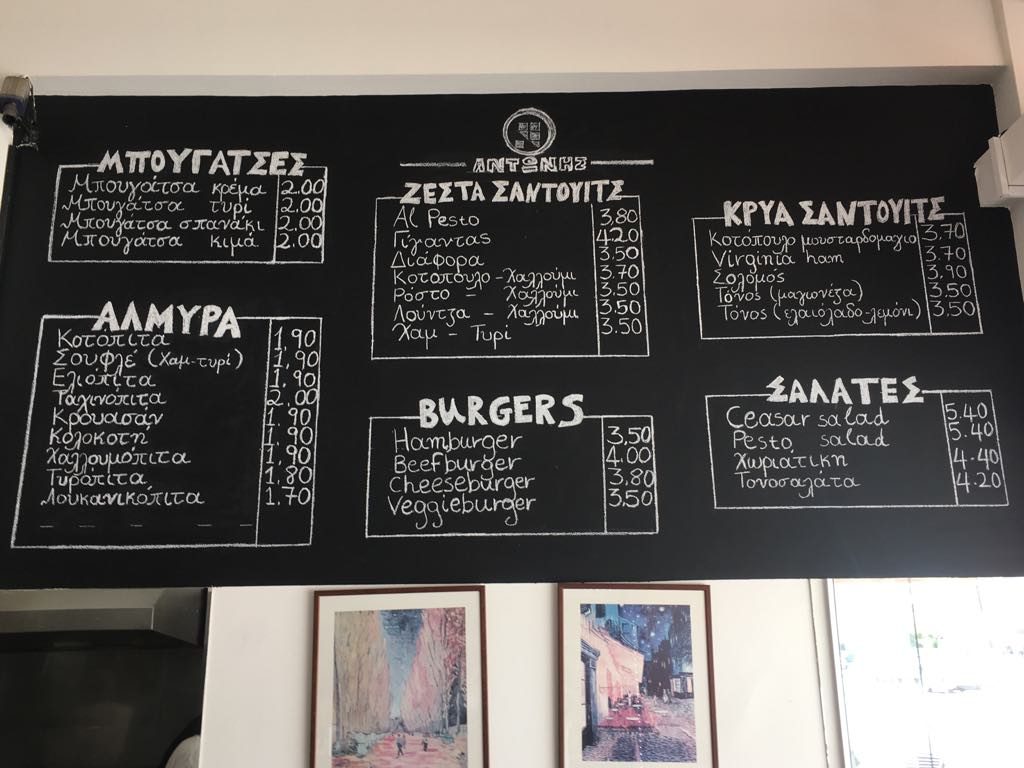 ΑΝΤΩΝΗΣ
ΜΠΟΥΓΑΤΣΕΣ
Μπουγάτσα κρέμα 2.00
Μπουγάτσα τυρί 2.00
Μπουγάτσα σπανάκι 2.00
Μπουγάτσα κιμά 2.00
ΑΛΜΥΡΑ
Κοτόπιτα 1,90
Σουφλέ (χαμ-τυρί) 1,90
Ελιόπιτα 1.90
Ταχινόπιτα 2.00
Κρουασάν 1.90
Κολοκοτή 1.90
Χαλλουμόπιτα 1.90
Τυρόπιτα 1.80
Λουκανικόπιτα 1.70
ΖΕΣΤΑ ΣΑΝΤΟΥΙΤΣ
Al Pesto 3.80
Γίγαντας 4.20
Διάφορα 3.50
Κοτόπουλο - Χαλλούμι 3.70
Ρόστο - Χαλλούμι 3.50
Λούντζα - Χαλλούμι 3.50
Χαμ - Τυρί 3.50
BURGERS
Hamburger 3.50
Beefburger 4.00
Cheeseburger 3.80
Veggieburger 3.50
ΚΡΥΑ ΣΑΝΤΟΥΙΤΣ
Κοτόπουλο μουσταρδομαγιο 3.70
Virginia ham 3.70
Σολομός 3.90
Τόνος (μαγιονέζα) 3.50
Τόνος (ελαιόλαδο-λεμόνι) 3.50
ΣΑΛΑΤΕΣ
Ceasar salad 5.40
Pesto salad 5.40
Χωριάτικη 4.40
Τονοσαλάτα 4.20